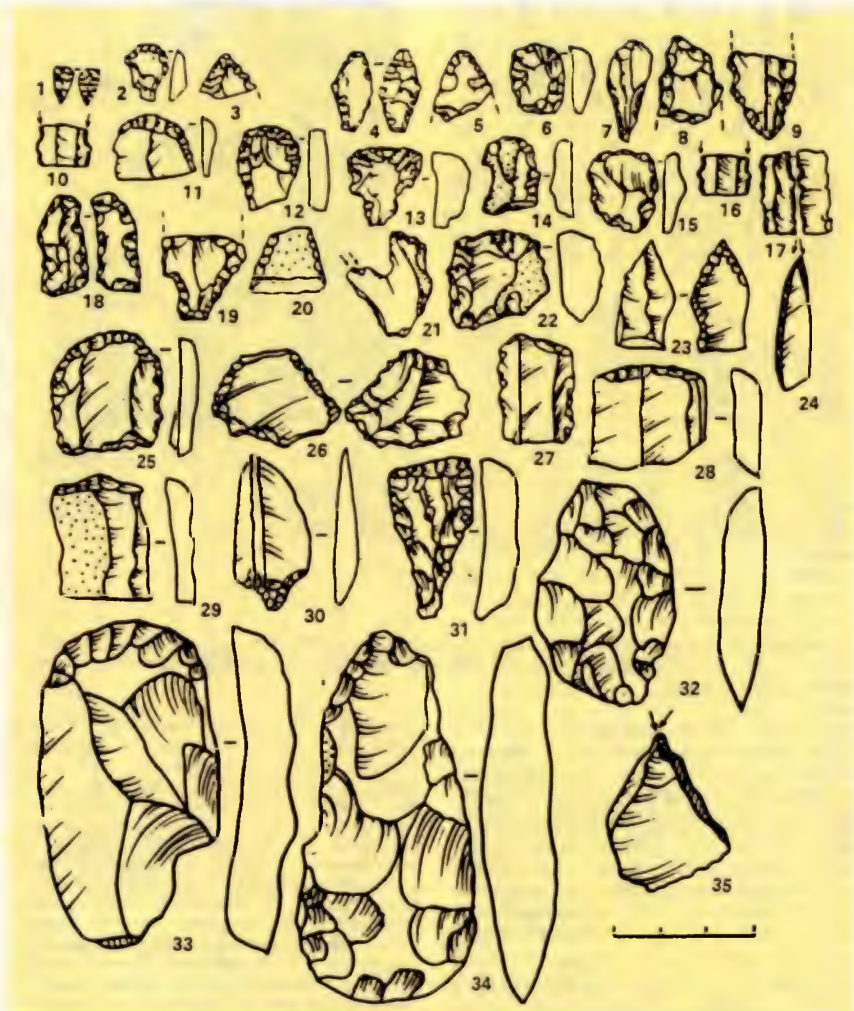 1 2 3 4 5 6 7 8 9
10 11 12 13 14 15 16 17
18 19 20 21 22 23 24
25 26 27 28
29 30 31 32
33 34 35